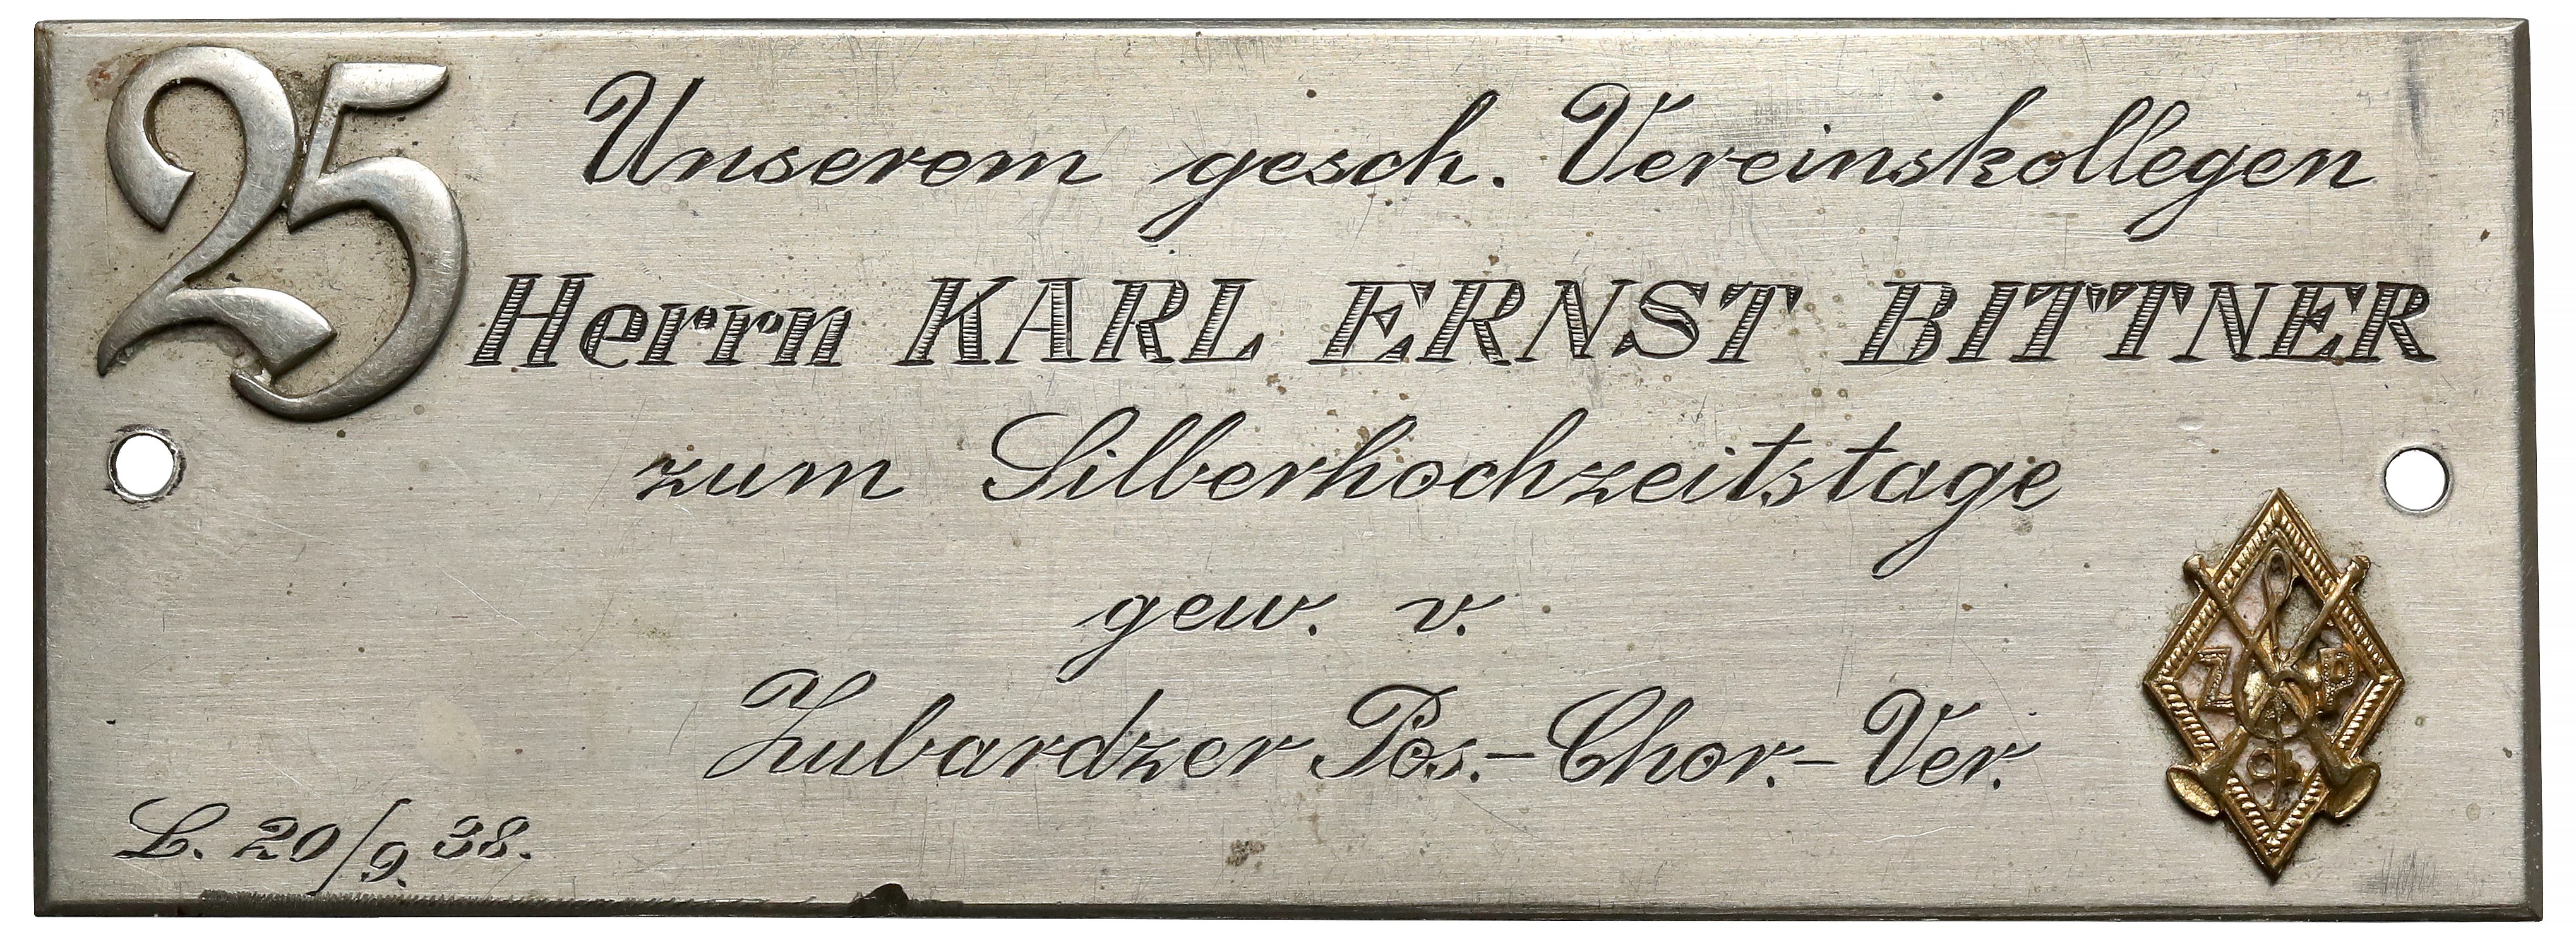 25
Unserem gesch. Vereinskollegen
Herrn KARL ERNST BITTNER
zum Silberhochzeitstage
gew. v.
Zubardzer Pos.-Chor.-Ver.
L. 20/9. 38.
Z P